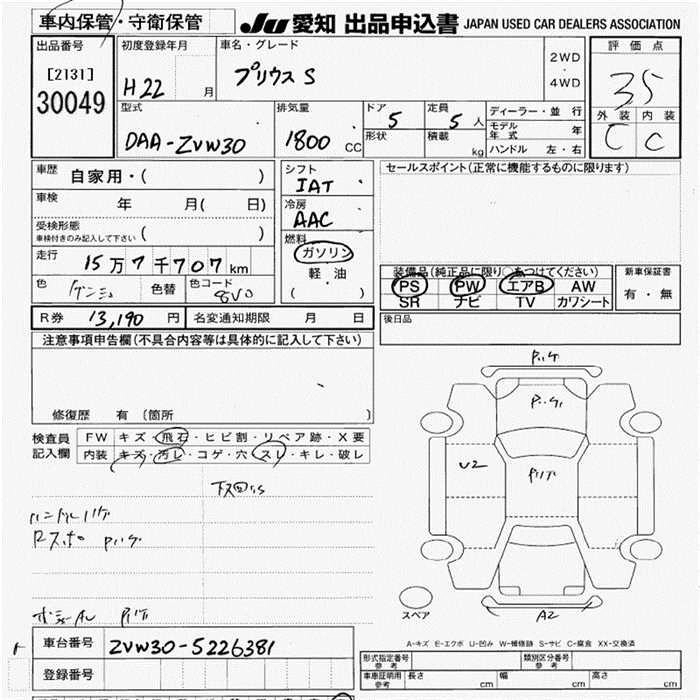 車内保管・守衛保管
JU 愛知 出品申込書 JAPAN USED CAR DEALERS ASSOCIATION
出品番号
[2131]
30049
初度登録年月
H22 月
車名・グレード
プリウス S
2WD
・
4WD
評価点
35
外装 内装
C C
型式
DAA-ZVW30
排気量
1800 CC
ドア 5
形状
定員 5 人
積載 kg
ディーラー・並行
モデル年式 年
ハンドル 左・右
車歴 自家用・( )
車検 年 月( 日)
受検形態
車検付きのみ記入して下さい ( )
走行 15万7千707km
色 色替 色コード 8V0
シフト
IAT
冷房
AAC
燃料
ガソリン
軽油
( )
セールスポイント(正常に機能するものに限ります)
装備品(純正品に限り○をつけてください)
PS PW エアB AW
SR ナビ TV カワシート
新車保証書
有・無
R券 13,190 円 名変通知期限 月 日
後日品
注意事項申告欄(不具合内容等は具体的に記入して下さい)
修復歴 有 〔箇所 〕
検査員
記入欄
FW キズ・飛石・ヒビ割・リペア跡・X要
内装 キズ・汚レ・コゲ・穴・スレ・キレ・破レ
下回りS
U2
スペア
A2
A-キズ E-エクボ U-凹み W-補修跡 S-サビ C-腐食 XX-交換済
車台番号 ZVW30-5226381
登録番号
形式指定番号
参考
類別区分番号
参考
車庫証明用
参考
長さ cm 幅 cm 高さ cm